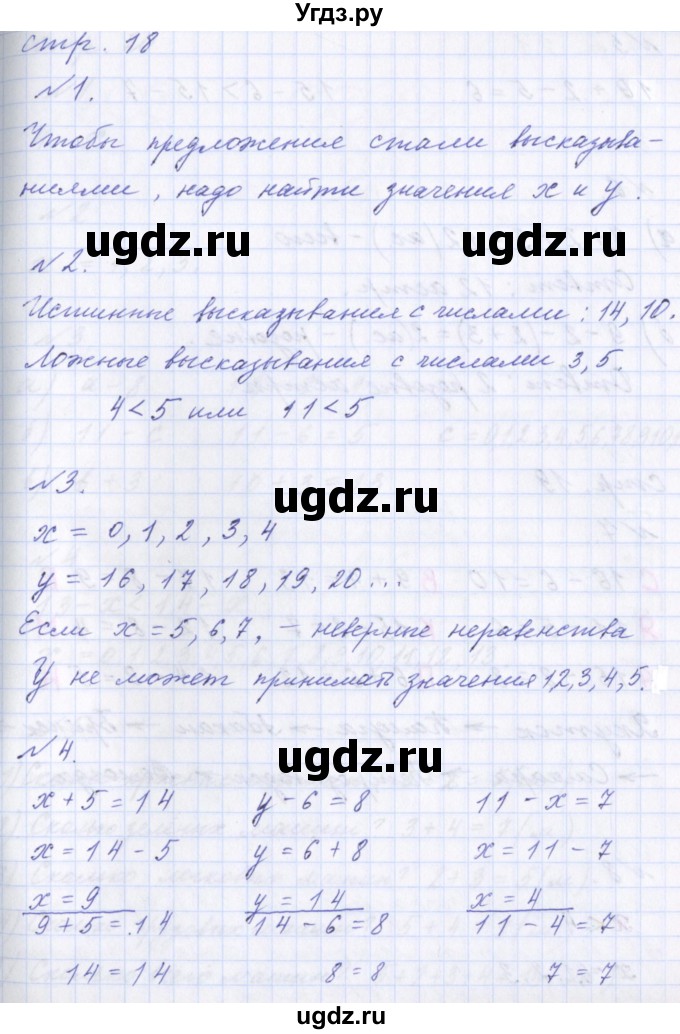 Угдз.ру
стр. 18
№1.
Чтобы предложения стали высказыва-
ниями, надо найти значения x и y.
ugdz.ru ugdz.ru
№2.
Истинные высказывания с числами: 14, 10.
Ложные высказывания с числами 3, 5.
4 < 5 или 11 < 5
№3.
ugdz.ru
x = 0, 1, 2, 3, 4
y = 16, 17, 18, 19, 20...
ugdz.ru ugdz.ru
Если x = 5, 6, 7, – неверные неравенства
У не может принимать значения 12,3,4,5.
№4.
ugdz.ru
x + 5 = 14 y - 6 = 8 11 - x = 7
x = 14 - 5 y = 6 + 8 x = 11 - 7
ugdz.ru ugdz.ru
x = 9 y = 14 x = 4
9 + 5 = 14 14 - 6 = 8 11 - 4 = 7
14 = 14 8 = 8 7 = 7
ugdz.ru
Угдз.ру